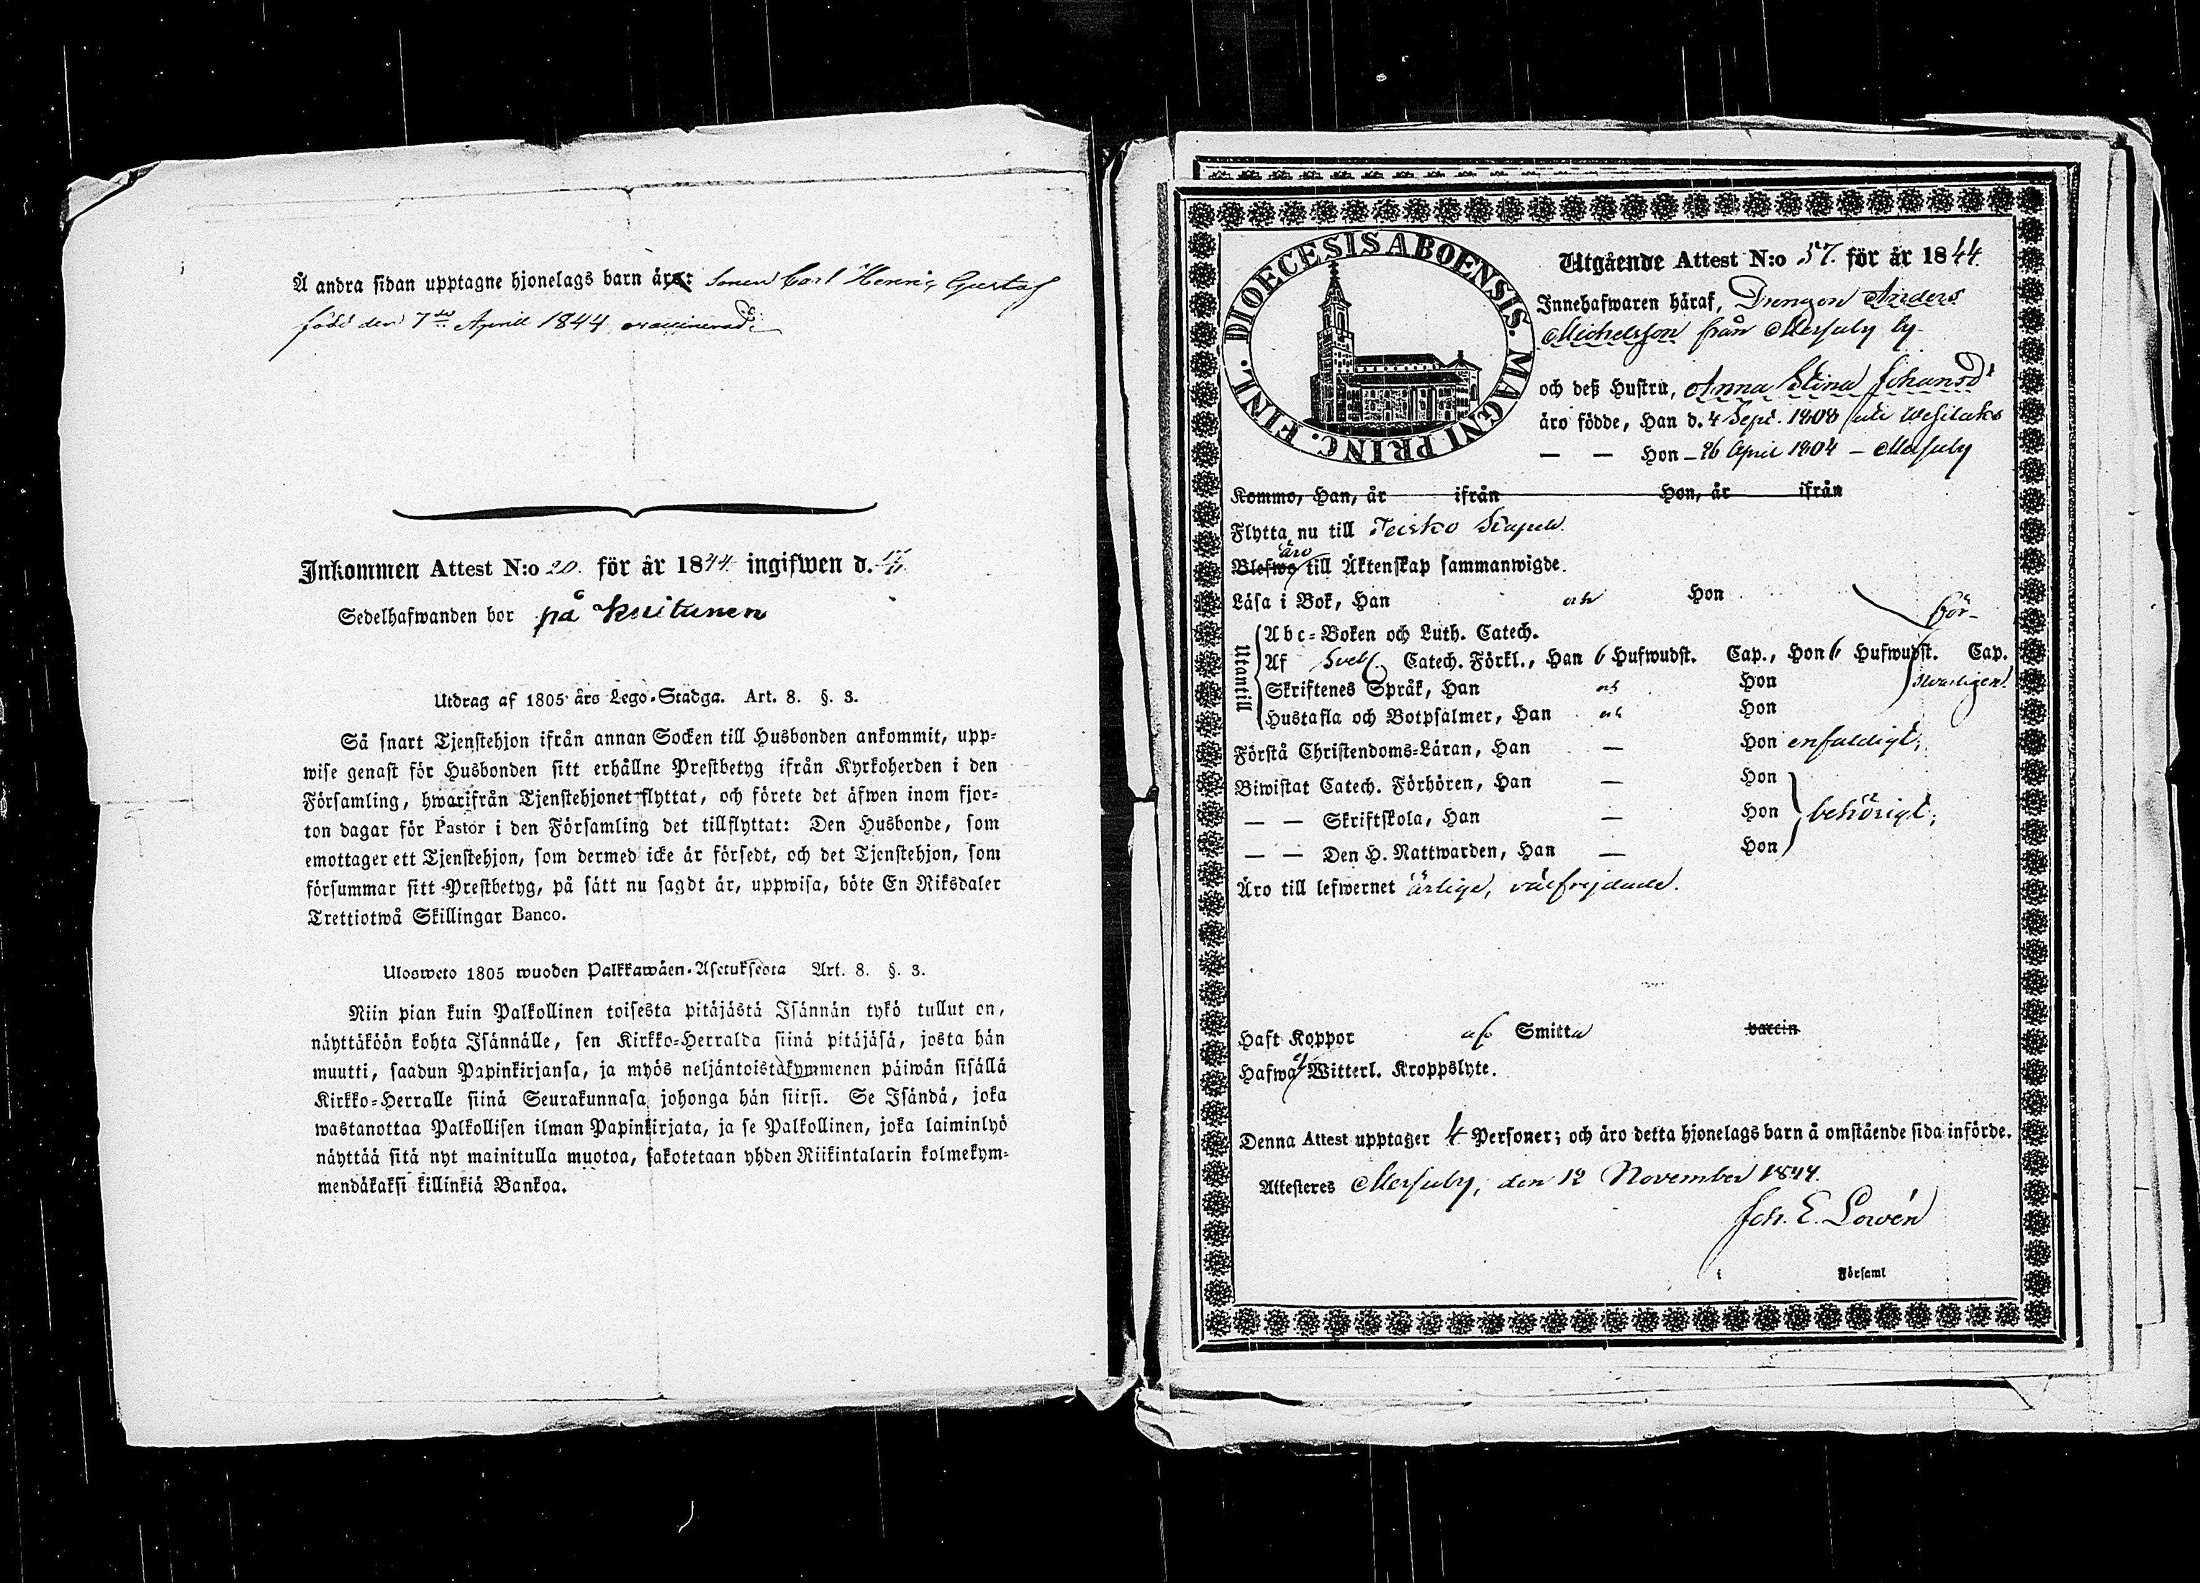 Å andra sidan upptagne hjonelags barn äro: Sonen Carl Henric Gustaf
född den 7de Aprill 1844, ovaccinerad.
Inkommen Attest N:o 20. för år 1844 ingifwen d.
Sedelhafwanden bor på Kuitunen
Utdrag af 1805 års Lego-Stadga. Art. 8. §. 3.
Så snart Tjenstehjon ifrån annan Socken till Husbonden ankommit, upp-
wise genast för Husbonden sitt erhållne Prestbetyg ifrån Kyrkoherden i den
Församling, hwarifrån Tjenstehjonet flyttat, och förete det äfwen inom fjor-
ton dagar för Pastor i den Församling det tillflyttat: Den Husbonde, som
emottager ett Tjenstehjon, som dermed icke är försedt, och det Tjenstehjon, som
försummar sitt Prestbetyg, på sätt nu sagdt är, uppwisa, böte En Riksdaler
Trettiotwå Skillingar Banco.
Ulosweto 1805 wuoden Palkkawäen-Asetuksesta Art. 8. §. 3.
Niin pian kuin Palkollinen toisesta pitäjästä Isännän tykö tullut on,
näyttäköön kohta Isännälle, sen Kirkko-Herralda siinä pitäjäsä, josta hän
muutti, saadun Papinkirjansa, ja myös neljäntoistakymmenen päiwän sisällä
Kirkko-Herralle siinä Seurakunnasa johonga hän siirsi. Se Isändä, joka
wastanottaa Palkollisen ilman Papinkirjata, ja se Palkollinen, joka laiminlyö
näyttää sitä nyt mainitulla muotoa, sakotetaan yhden Riikintalarin kolmekym-
mendäkaksi killinkiä Bankoa.
DIOECESIS ABOENSIS. MAGNI PRINC. FINL.
Utgående Attest N:o 57. för år 1844
Innehafwaren häraf, Drengen Anders
Michelsson från Mersuby by
och deß Hustru, Anna Stina Johansdr
äro födde, Han d. 4 Sept. 1808 uti Wesilaks
— — Hon – 26 April 1804 – Mersuby
Kommo, Han, år ifrån Hon, år ifrån
Flytta nu till Teisko Kapell.
äro
Blefwo till Äktenskap sammanwigde.
Läsa i Bok, Han och Hon
Utantill
Abc-Boken och Luth. Catech. för-
Af Sveb. Catech. Förkl., Han 6 Hufwudst. Cap., Hon 6 Hufwudst. Cap.
Skriftenes Språk, Han och Hon svarligen.
Hustafla och Botpsalmer, Han och Hon
Förstå Christendoms-Läran, Han — Hon enfaldigt;
Biwistat Catech. Förhören, Han — Hon
— — Skriftskola, Han — Hon behörigt;
— — Den H. Nattwarden, Han — Hon
Äro till lefwernet ärlige, välfrejdade.
Haft Koppor af Smitta vaccin
Hafwa ej Witterl. Kroppslyte.
Denna Attest upptager 4 Personer; och äro detta hjonelags barn å omstående sida införde.
Attesteres Mersuby, den 12 November 1844.
Joh. E. Lowén
i Församl